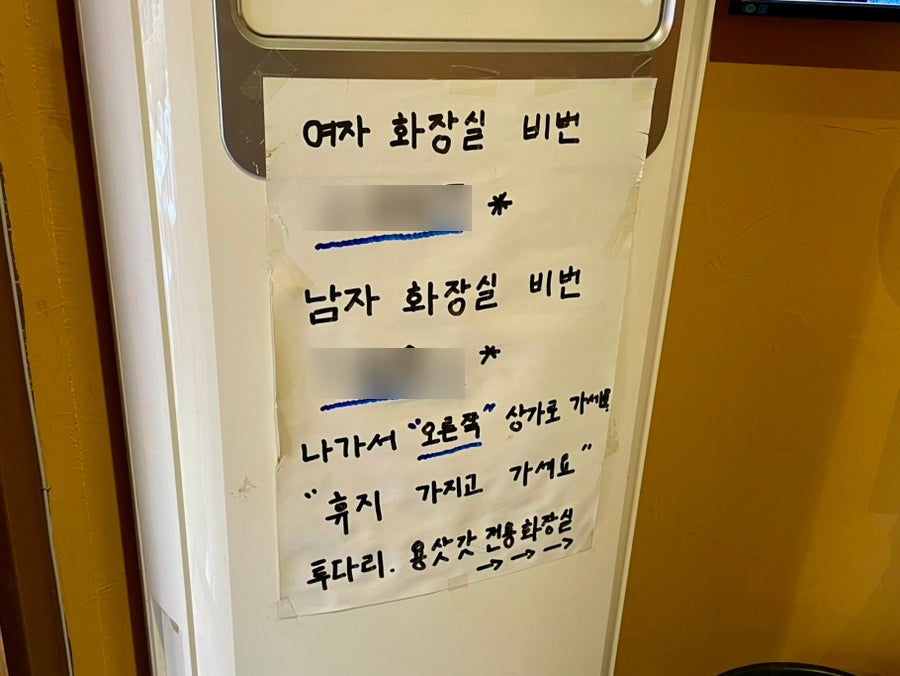 여자 화장실 비번
*
남자 화장실 비번
*
나가서 "오른쪽" 상가로 가세요
"휴지 가지고 가세요"
투다리. 용삿갓 전용화장실
→ → →